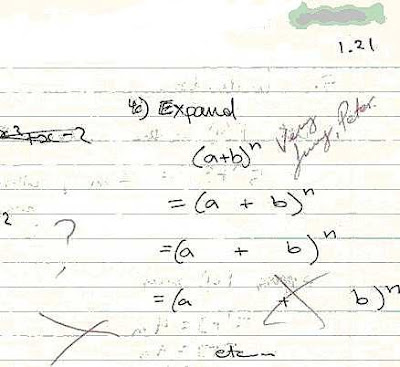 1.21
4c) Expand
x² + x - 2
(a+b)ⁿ
Very funny, Peter.
= (a + b)ⁿ
2
?
= (a + b)ⁿ
= (a + b)ⁿ
etc...